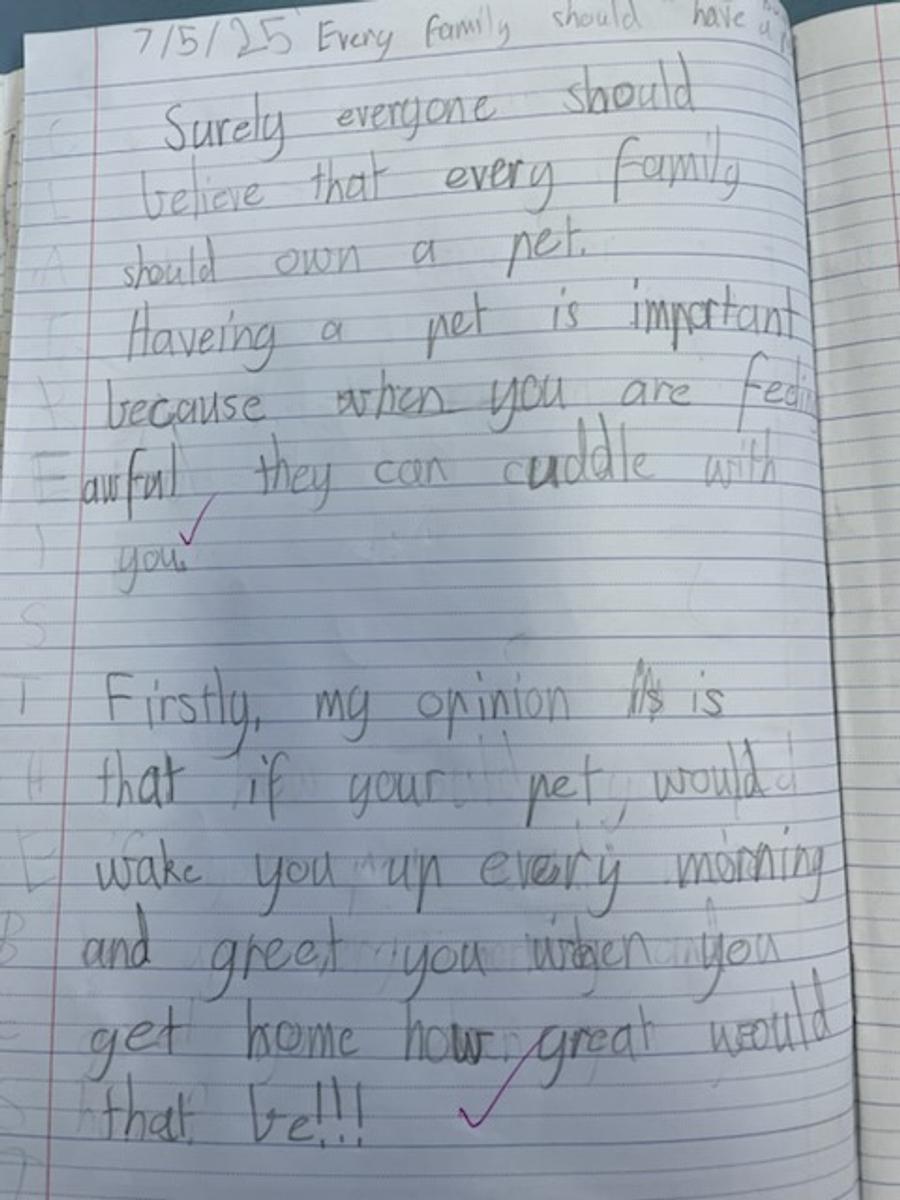 7/5/25 Every family should have a
Surely everyone should
believe that every family
should own a pet.
Haveing a pet is important
because when you are feelin
awful they can cuddle with
you.
Firstly, my opinion is
that if your pet would
wake you up every morning
and greet you when you
get home how great would
that be!!!